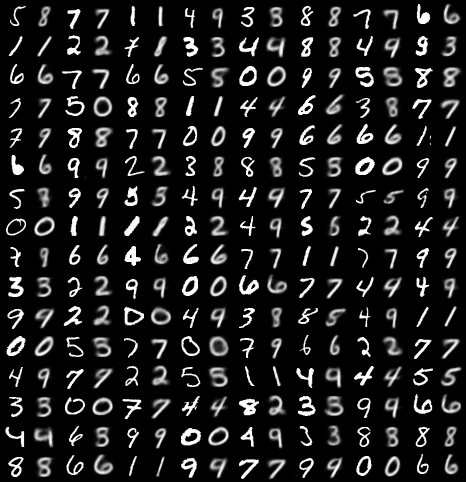 5 8 7 7 1 1 4 9 3 3 8 8 7 7 6 6
1 1 2 2 7 8 3 3 4 9 8 8 4 9 9 3
6 6 7 7 6 6 5 5 0 0 9 9 5 5 8 8
7 7 5 0 8 8 1 1 4 4 6 6 3 8 7 7
7 9 8 8 7 7 0 0 9 9 6 6 6 6 1 1
6 6 9 9 2 2 3 8 8 8 5 5 0 0 9 9
5 8 9 9 5 3 4 9 4 9 7 7 5 5 9 9
0 0 1 1 1 1 2 2 4 9 5 6 2 2 4 4
7 9 6 6 4 6 6 6 7 7 1 1 7 7 9 9
3 3 2 2 9 9 0 0 6 6 7 7 4 4 4 9
9 9 2 2 0 0 4 9 3 8 8 5 4 9 1 1
0 0 5 5 7 7 0 0 7 9 6 6 2 2 7 7
4 9 7 7 2 2 5 5 1 1 4 9 4 4 5 5
3 3 0 0 7 7 4 4 8 2 3 3 9 9 6 6
4 4 6 3 9 9 0 0 4 9 3 3 8 8 8 8
8 8 6 6 1 1 9 9 7 7 9 9 0 0 6 6